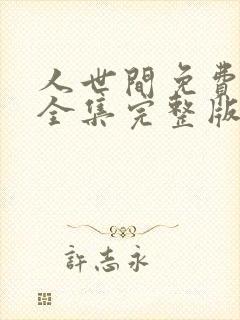 人世間免費
全集完整版
許志永